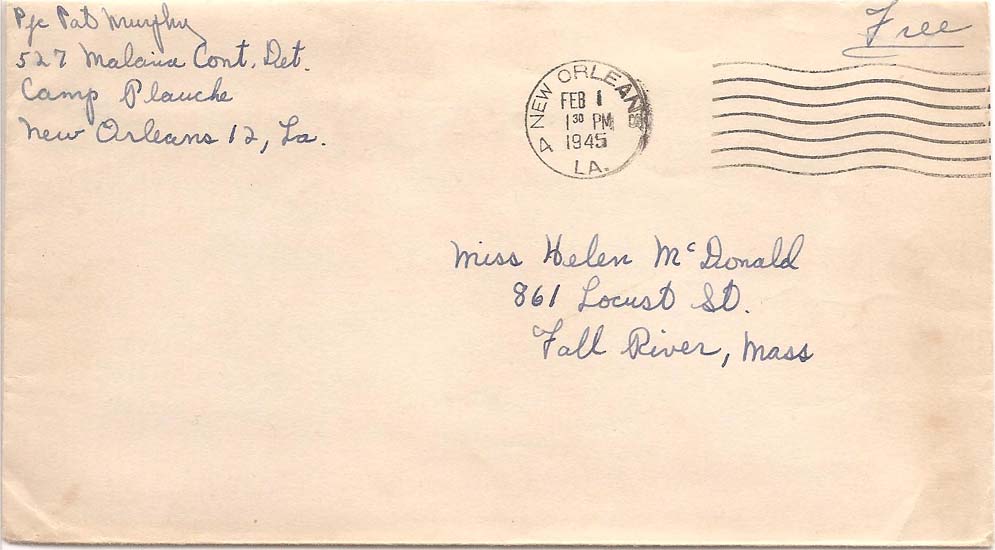 Pfc Pat Murphy
527 Malaria Cont. Det.
Camp Plauche
New Orleans 12, La.
Free
NEW ORLEANS
FEB 1
1 30 PM
1945
LA.
Miss Helen McDonald
861 Locust St.
Fall River, Mass